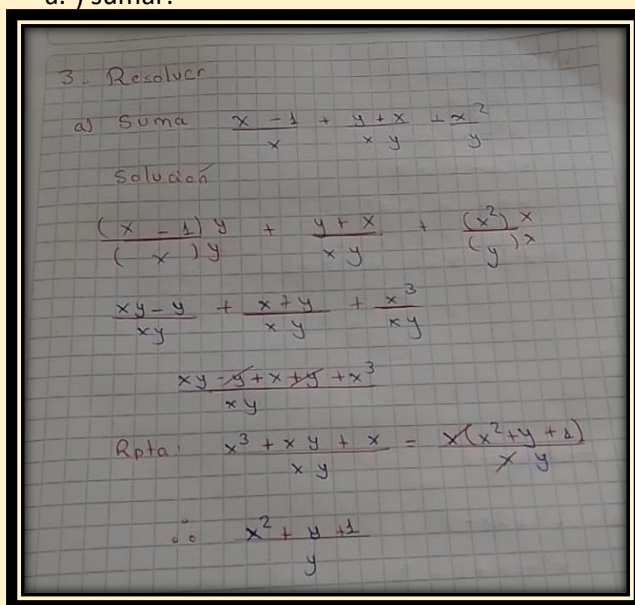 a. ) sumar:
3. Resolver
a) Suma x - 1 / x + y + x / x y + x² / y
Solución
(x - 1) y / (x) y + y + x / x y + (x²) x / (y) x
xy - y / xy + x + y / x y + x³ / x y
xy - y + x + y + x³ / xy
Rpta: x³ + x y + x / x y = x(x² + y + 1) / x y
∴ x² + y + 1 / y